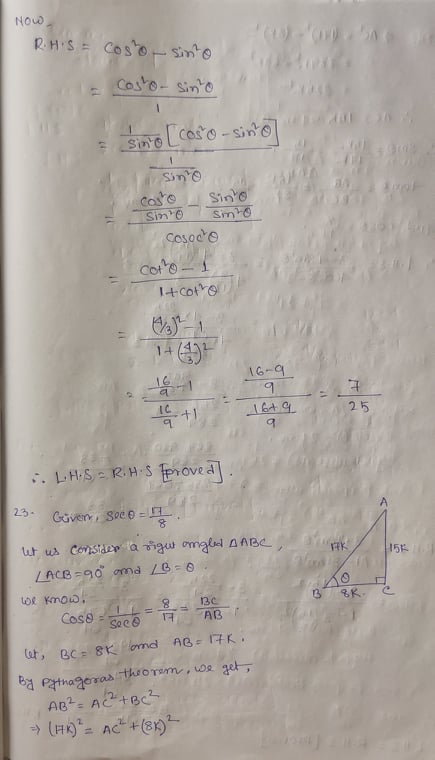 Now,
R.H.S = Cos²θ - Sin²θ
= (Cos²θ - Sin²θ)/1
= (1/Sin²θ [Cos²θ - Sin²θ])/(1/Sin²θ)
= (Cos²θ/Sin²θ - Sin²θ/Sin²θ)/Cosec²θ
= (Cot²θ - 1)/(1 + Cot²θ)
= ((4/3)² - 1)/(1 + (4/3)²)
= (16/9 - 1)/(16/9 + 1) = ((16-9)/9)/((16+9)/9) = 7/25
∴ L.H.S = R.H.S [Proved].
23. Given, Secθ = 17/8.
let us consider a right angled △ABC,
∠ACB = 90° and ∠B = θ.
we know,
Cosθ = 1/Secθ = 8/17 = BC/AB
let, BC = 8K and AB = 17K.
By Pythagoras theorem, we get,
AB² = AC² + BC²
⇒ (17K)² = AC² + (8K)²
A
17K
15K
θ
B
8K.
C